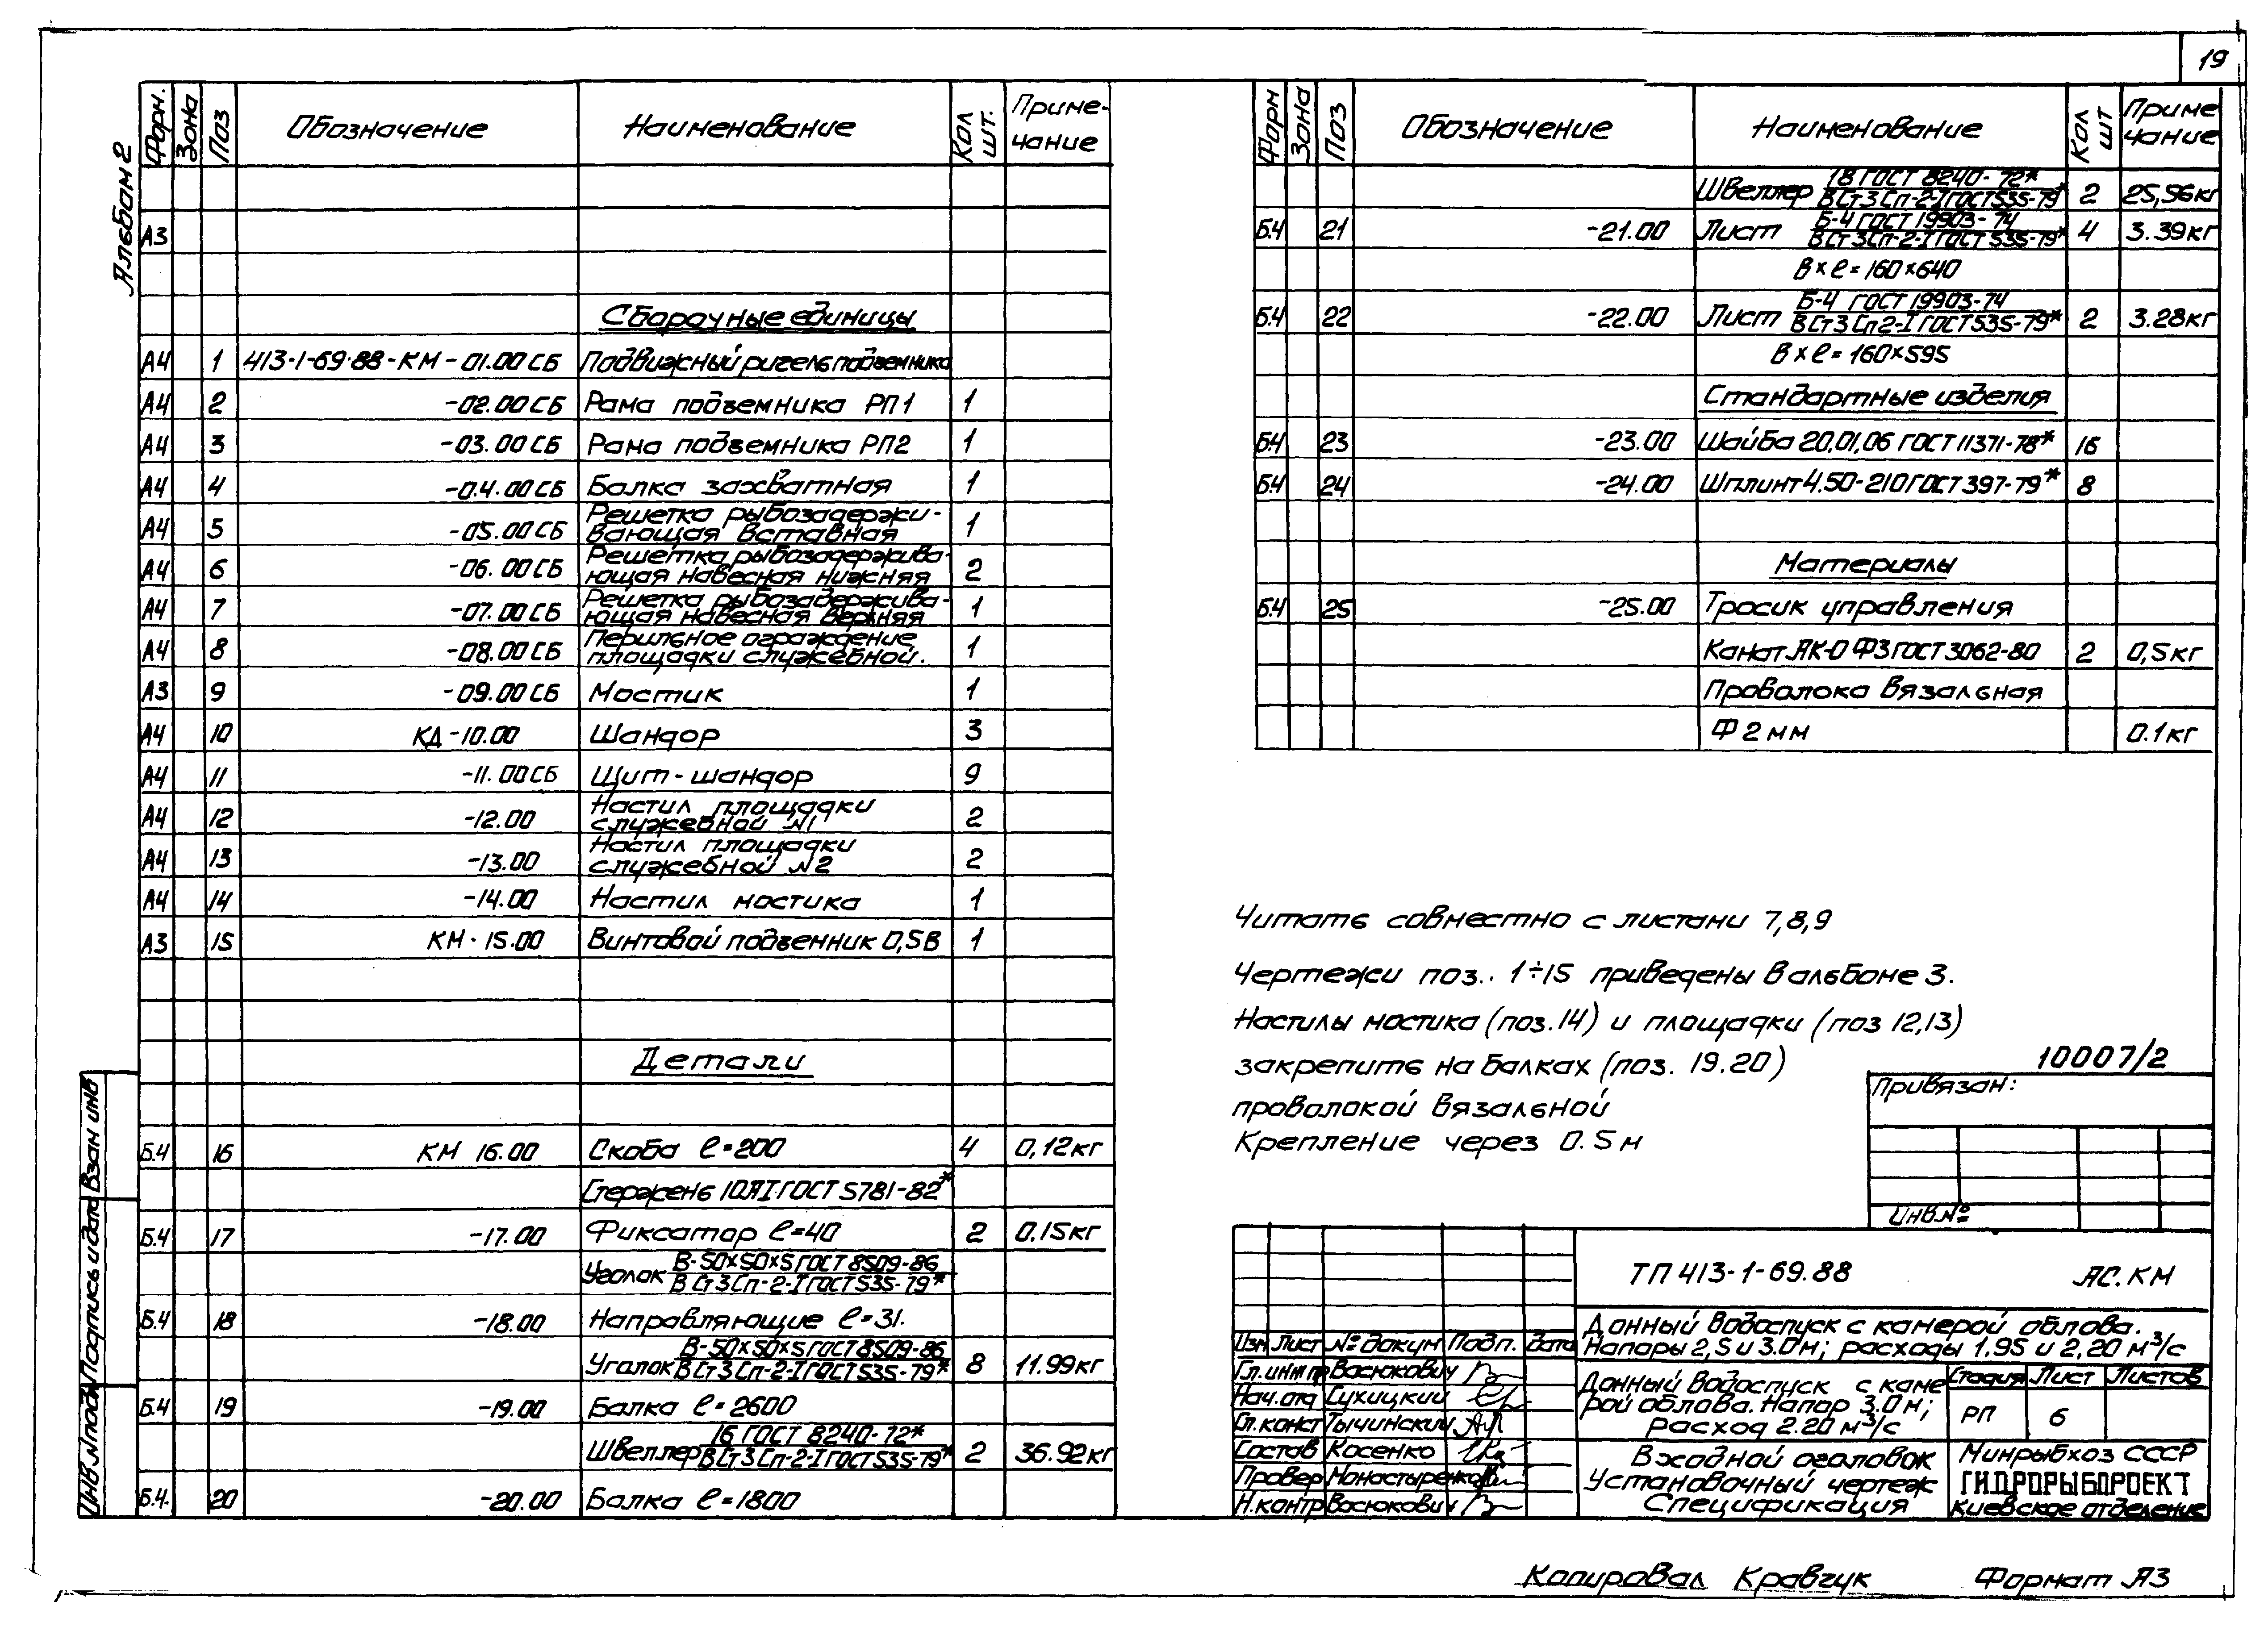 19
Альбом 2
Форм. Зона Поз Обозначение Наименование Кол шт. Приме-чание
А3
Сборочные единицы
А4 1 413-1-69-88-КМ-01.00СБ Подвижный ригель подъемника
А4 2 -02.00СБ Рама подъемника РП1 1
А4 3 -03.00СБ Рама подъемника РП2 1
А4 4 -04.00СБ Балка захватная 1
А4 5 -05.00СБ Решетка рыбозадержи-
вающая вставная 1
А4 6 -06.00СБ Решетка рыбозадержива-
ющая навесная нижняя 2
А4 7 -07.00СБ Решетка рыбозадержива-
ющая навесная верхняя 1
А4 8 -08.00СБ Перильное ограждение
площадки служебной. 1
А3 9 -09.00СБ Мостик 1
А4 10 КД-10.00 Шандор 3
А4 11 -11.00СБ Щит-шандор 9
А4 12 -12.00 Настил площадки
служебной №1 2
А4 13 -13.00 Настил площадки
служебной №2 2
А4 14 -14.00 Настил мостика 1
А3 15 КМ-15.00 Винтовой подъемник 0,5В 1
Детали
Б.4 16 КМ 16.00 Скоба ℓ=200 4 0,12кг
Стержень 10АI ГОСТ 5781-82*
Б.4 17 -17.00 Фиксатор ℓ=40 2 0.15кг
Уголок В-50×50×5 ГОСТ 8509-86
ВСт3Сп-2-I ГОСТ 535-79*
Б.4 18 -18.00 Направляющие ℓ=31.
Уголок В-50×50×5 ГОСТ 8509-86
ВСт3Сп-2-I ГОСТ 535-79* 8 11.99кг
Б.4 19 -19.00 Балка ℓ=2600
Швеллер 16 ГОСТ 8240-72*
ВСт3Сп-2-I ГОСТ 535-79* 2 36.92кг
Б.4. 20 -20.00 Балка ℓ=1800
Форм Зона Поз Обозначение Наименование Кол шт Приме чание
Швеллер 18 ГОСТ 8240-72*
ВСт3Сп-2-I ГОСТ 535-79* 2 25,56кг
Б.4 21 -21.00 Лист Б-4 ГОСТ 19903-74
ВСт3Сп-2-I ГОСТ 535-79* 4 3.39кг
в×ℓ=160×640
Б.4 22 -22.00 Лист Б-4 ГОСТ 19903-74
ВСт3Сп2-I ГОСТ 535-79* 2 3.28кг
в×ℓ=160×595
Стандартные изделия
Б.4 23 -23.00 Шайба 20,01,06 ГОСТ 11371-78* 16
Б.4 24 -24.00 Шплинт 4.50-210 ГОСТ 397-79* 8
Материалы
Б.4 25 -25.00 Тросик управления
Канат ЛК-О Ф3 ГОСТ 3062-80 2 0,5кг
Проволока вязальная
Ф 2 мм 0.1кг
Читать совместно с листами 7,8,9
Чертежи поз.. 1÷15 приведены в альбоме 3.
Настилы мостика (поз.14) и площадки (поз 12,13)
закрепить на балках (поз. 19.20)
проволокой вязальной
Крепление через 0.5м
10007/2
Привязан:
Инв.№
ТП 413-1-69.88 АС.КМ
Донный водоспуск с камерой облова.
Напоры 2,5 и 3.0м; расходы 1.95 и 2,20 м³/с
Изм Лист № докум Подп. Дата
Гл.инж пр Васюкович
Нач.отд Сухицкий
Гл.конст Тычинский
Состав Косенко
Провер Монастыренко
Н.контр Васюкович
Донный водоспуск с каме
рой облова. Напор 3.0м;
расход 2.20 м³/с
Стадия Лист Листов
РП 6
Входной оголовок
Установочный чертеж
Спецификация
Минрыбхоз СССР
ГИДРОРЫБПРОЕКТ
Киевское отделение
Инв.№ подл Подпись и дата Взам инв
Копировал Кравчук Формат А3